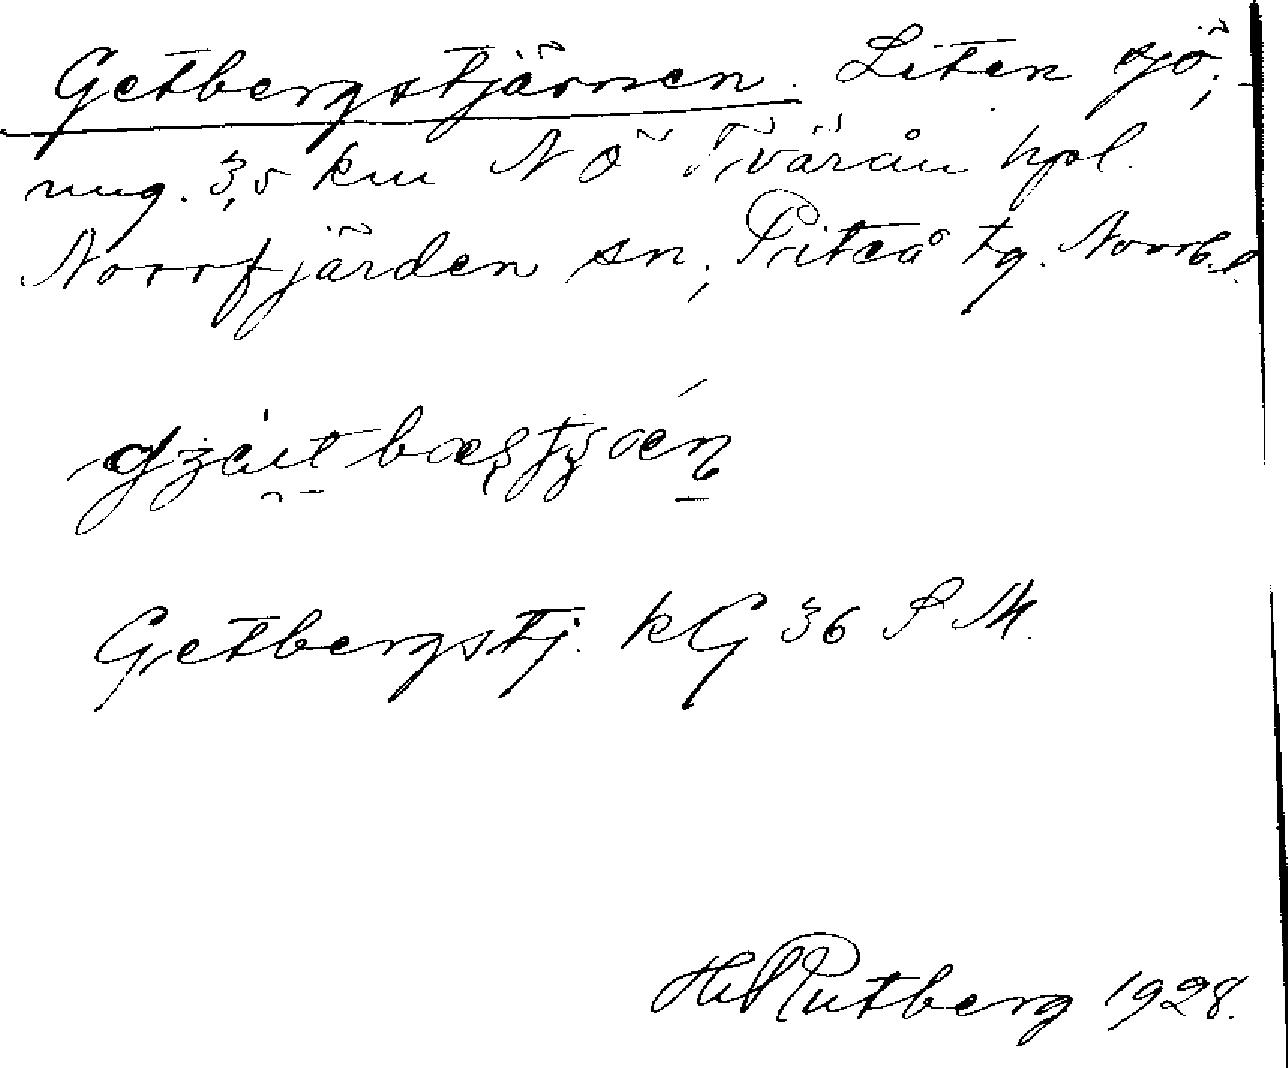 Getbergstjärnen. Liten sjö,
ung. 3,5 km NÖ Tvärån hpl.
Norrfjärden sn, Piteå tg. Norrb. l.
Getbergstj. kG 36 S M.
Hj Rutberg 1928.